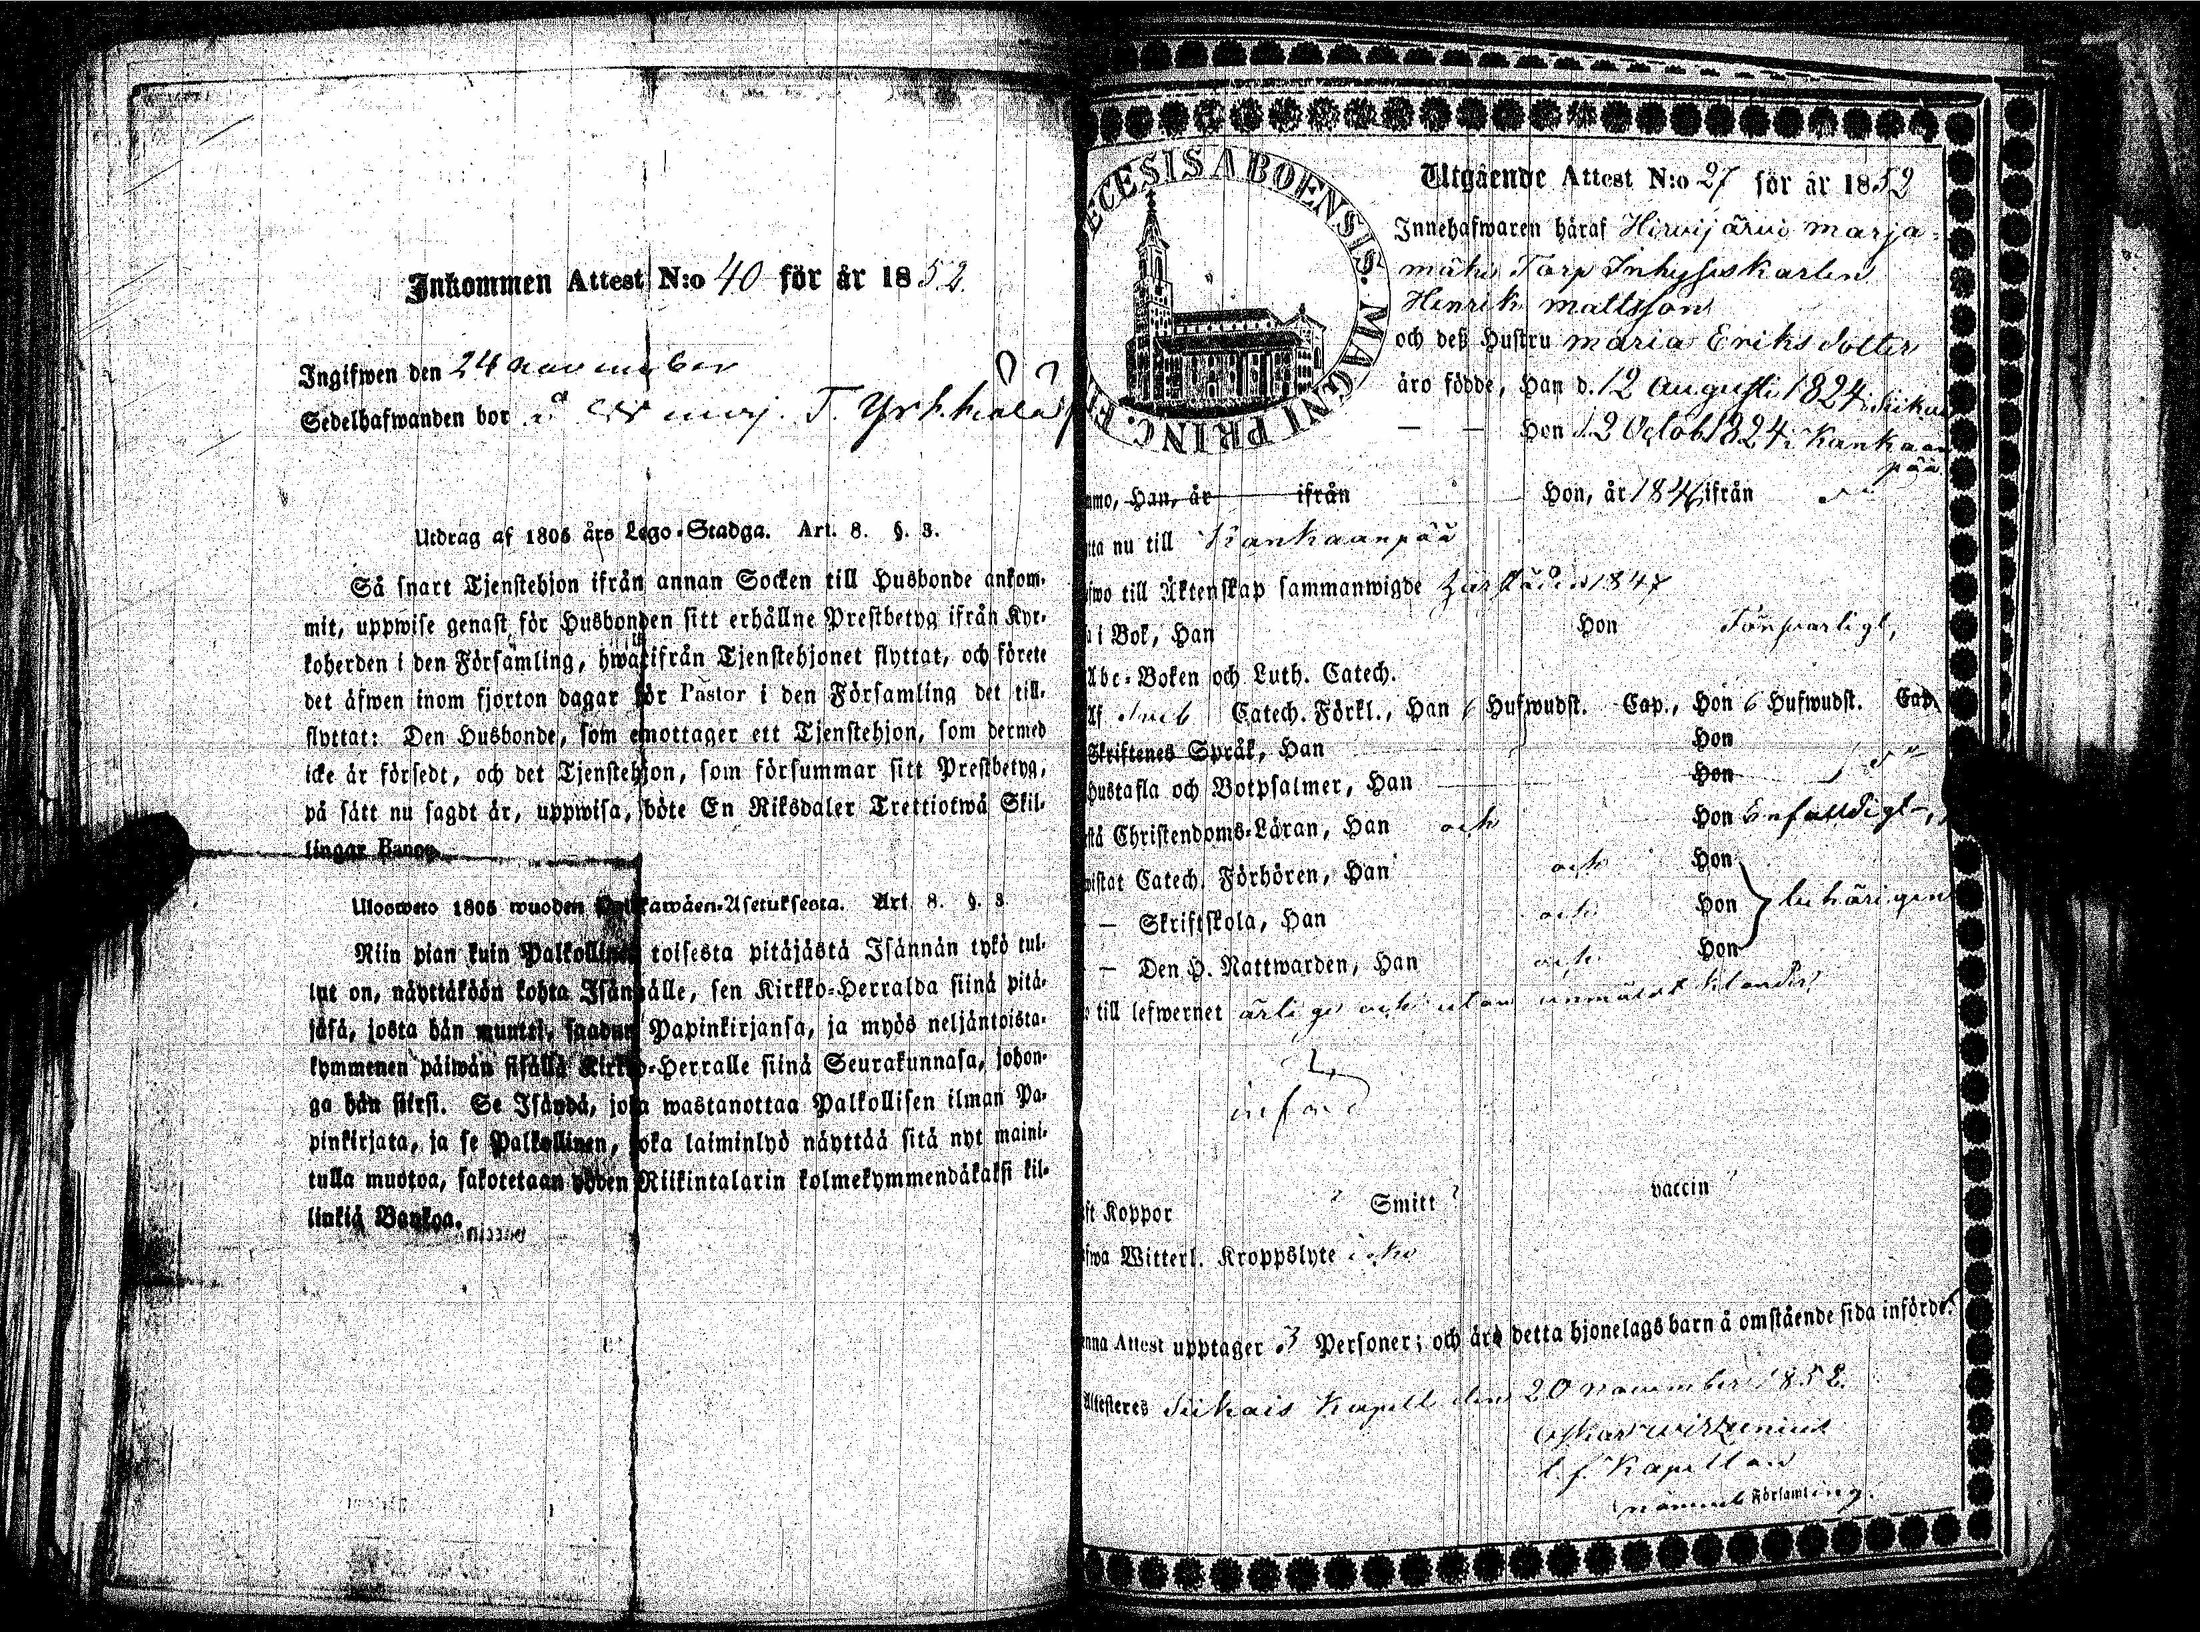 Inkommen Attest N:o 40 för år 1852.
Ingifwen den 24 november
Sedelhafwanden bor å
Utdrag af 1805 års Lego-Stadga. Art. 8. §. 3.
Så snart Tjenstehjon ifrån annan Socken till Husbonde ankom-
mit, uppwise genast för Husbonden sitt erhållne Prestbetyg ifrån Kyr-
koherden i den Församling, hwarifrån Tjenstehjonet flyttat, och förete
det äfwen inom fjorton dagar för Pastor i den Församling det till-
flyttat: Den Husbonde, som emottager ett Tjenstehjon, som dermed
icke är försedt, och det Tjenstehjon, som försummar sitt Prestbetyg,
på sätt nu sagdt är, uppwisa, böte En Riksdaler Trettiotwå Skil-
lingar Banco.
Ulosweto 1805 wuoden Palkkawäen-Asetuksesta. Art. 8. §. 3
Niin pian kuin Palkollinen toisesta pitäjästä Isännän tykö tul-
lut on, näyttäköön kohta Isännälle, sen Kirkko-Herralda siinä pitä-
jäsä, josta hän muutti, saadun Papinkirjansa, ja myös neljäntoista-
kymmenen päiwän sisällä Kirkko-Herralle siinä Seurakunnasa, johon-
ga hän siirsi. Se Isändä, joka wastanottaa Palkollisen ilman Pa-
pinkirjata, ja se Palkollinen, joka laiminlyö näyttää sitä nyt maini-
tulla muotoa, sakotetaan yhden Riikintalarin kolmekymmendäkaksi kil-
linkiä Bankoa.
ECESIS ABOENSIS. MAGNI PRINC. FI
Utgående Attest N:o 27 för år 1852
Innehafwaren häraf Hirvijärvi marja-
mäki Torp Inhyseskarlen
Henrik Mattsson
och deß Hustru maria Eriksdotter
äro födde, Han d. 12 augusti 1824 i Siikais
— — Hon d. 2 Octob 1824 i Kankaan
pää
mo, Han, år ifrån Hon, år 1846 ifrån
ta nu till Kankaanpää
wo till Äktenskap sammanwigde 1847
i Bok, Han Hon Försvarligt,
Abc-Boken och Luth. Catech.
Af Sveb Catech. Förkl., Han 6 Hufwudst. Cap., Hon 6 Hufwudst. Cap.
Skriftenes Språk, Han Hon
Hustafla och Botpsalmer, Han Hon
stå Christendoms-Läran, Han och Hon Enfaldigt,
wistat Catech. Förhören, Han och Hon
— Skriftskola, Han och Hon behörigen
— Den H. Nattwarden, Han och Hon
till lefwernet ärlige och utan anmärkt klander
införd
ft Koppor ? Smitt ? vaccin ?
fwa Witterl. Kroppslyte icke
enna Attest upptager 3 Personer; och äro detta hjonelags barn å omstående sida införde.
Attesteres Siikais Kapell den 20 november 1852.
Oskar Wirzenius
t. f. Kapellan
nämnde Församling.